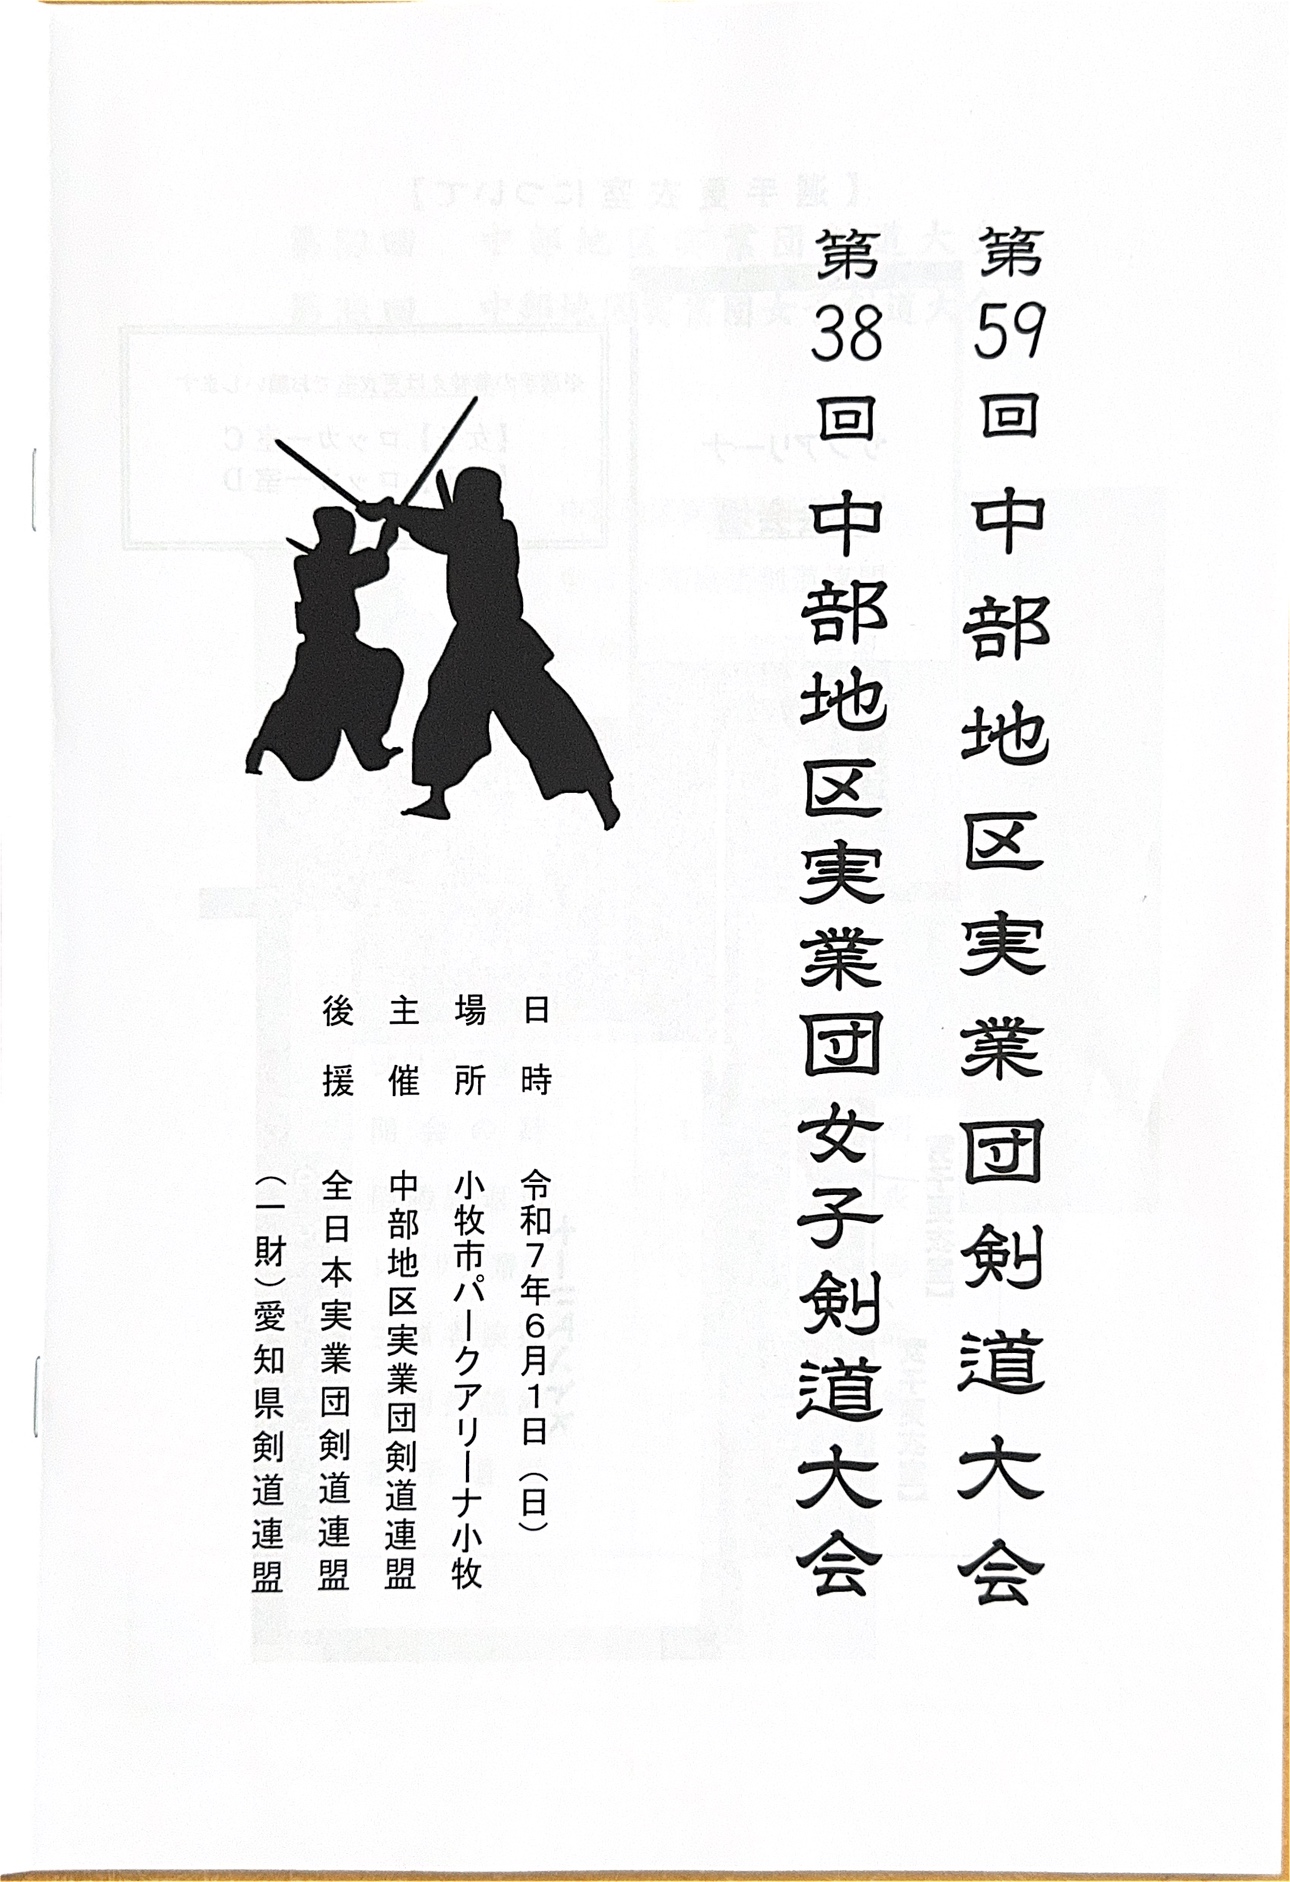 第59回 中部地区実業団剣道大会
第38回 中部地区実業団女子剣道大会
日時 令和7年6月1日（日）
場所 小牧市パークアリーナ小牧
主催 中部地区実業団剣道連盟
後援 全日本実業団剣道連盟
（一財）愛知県剣道連盟